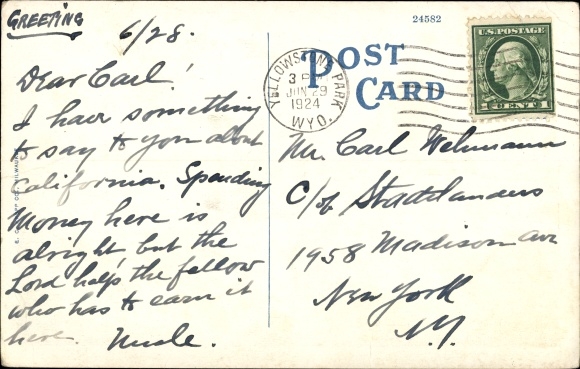 GREETING
6/28.
Dear Carl!
I have something
to say to you about
California. Spending
Money here is
alright but the
Lord help the fellow
who has to earn it
here.
24582
POST
CARD
YELLOWSTONE PARK,
3 P
JUN 29
1924
WYO.
U.S. POSTAGE
1 CENT 1
Mr. Carl Wehmann
C/of Stadtlanders
1958 Madison Ave
New York
N.Y.